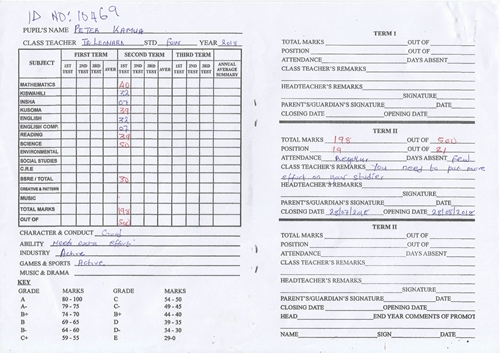 ID NO: 10469
PUPIL'S NAME Peter Kamua
CLASS TEACHER Tr Leonard STD Four YEAR 2018
FIRST TERM SECOND TERM THIRD TERM
SUBJECT 1ST TEST 2ND TEST 3RD TEST AVER 1ST TEST 2ND TEST 3RD TEST AVER 1ST TEST 2ND TEST 3RD TEST ANNUAL AVERAGE SUMMARY
MATHEMATICS 40
KISWAHILI 32
INSHA 07
KUSOMA 39
ENGLISH 32
ENGLISH COMP. 07
READING 39
SCIENCE 50
ENVIRONMENTAL
SOCIAL STUDIES
C.R.E
SSRE / TOTAL 30
CREATIVE & PATTERN
MUSIC
TOTAL MARKS 198
OUT OF 500
CHARACTER & CONDUCT Good
ABILITY Needs extra effort
INDUSTRY Active
GAMES & SPORTS Active
MUSIC & DRAMA
KEY
GRADE MARKS GRADE MARKS
A 80 - 100 C 54 - 50
A- 79 - 75 C- 49 - 45
B+ 74 - 70 B+ 44 - 40
B 69 - 65 D 39 - 35
B- 64 - 60 D- 34 - 30
C+ 59 - 55 E 29-0
TERM I
TOTAL MARKS OUT OF
POSITION OUT OF
ATTENDANCE DAYS ABSENT
CLASS TEACHER'S REMARKS
HEADTEACHER'S REMARKS
SIGNATURE
PARENT'S/GUARDIAN'S SIGNATURE DATE
CLOSING DATE OPENING DATE
TERM II
TOTAL MARKS 198 OUT OF 500
POSITION 19 OUT OF 21
ATTENDANCE Regular DAYS ABSENT Few
CLASS TEACHER'S REMARKS You need to put more
effort on your studies
HEADTEACHER'S REMARKS
SIGNATURE
PARENT'S/GUARDIAN'S SIGNATURE DATE
CLOSING DATE 28/07/2018 OPENING DATE 28/08/2018
TERM II
TOTAL MARKS OUT OF
POSITION OUT OF
ATTENDANCE DAYS ABSENT
CLASS TEACHER'S REMARKS
HEADTEACHER'S REMARKS
SIGNATURE
PARENT'S/GUARDIAN'S SIGNATURE DATE
CLOSING DATE OPENING DATE
HEAD END YEAR COMMENTS OF PROMOT
NAME SIGN DATE